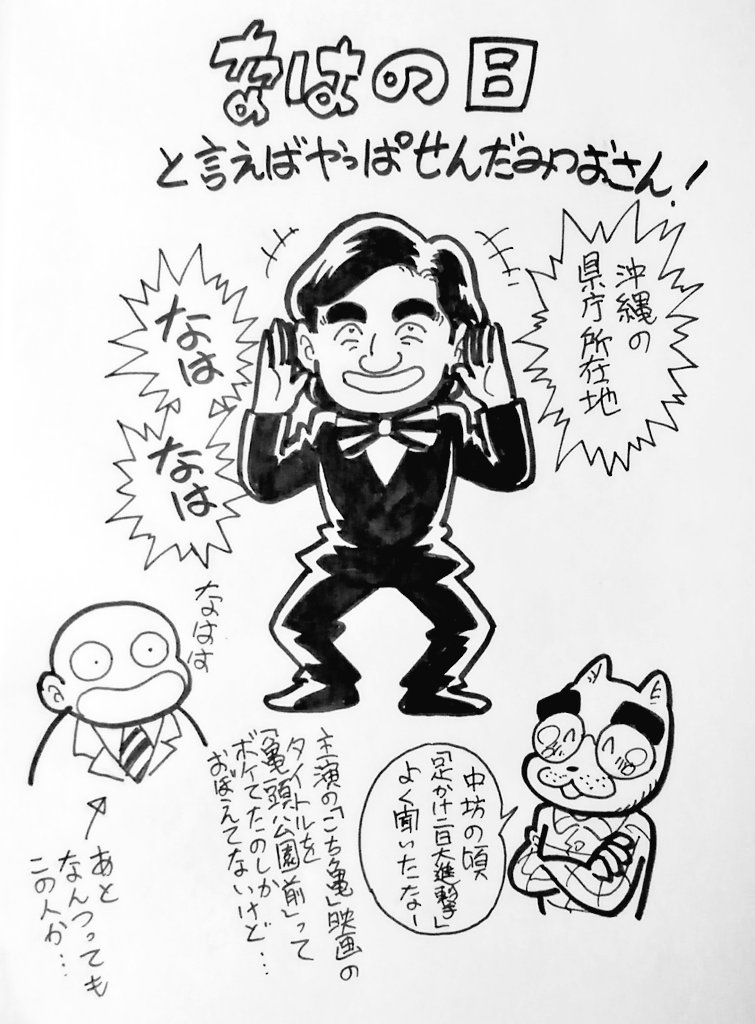 なはの日
と言えばやっぱせんだみつおさん!
沖縄の
県庁所在地
なは
なは
なはは
主演の「こち亀」映画の
タイトルを
「亀頭公園前」って
ボケてたのしか
おぼえてないけど…
中坊の頃
「足かけ二日大進撃」
よく聞いたなー
あと
なんつっても
この人か…